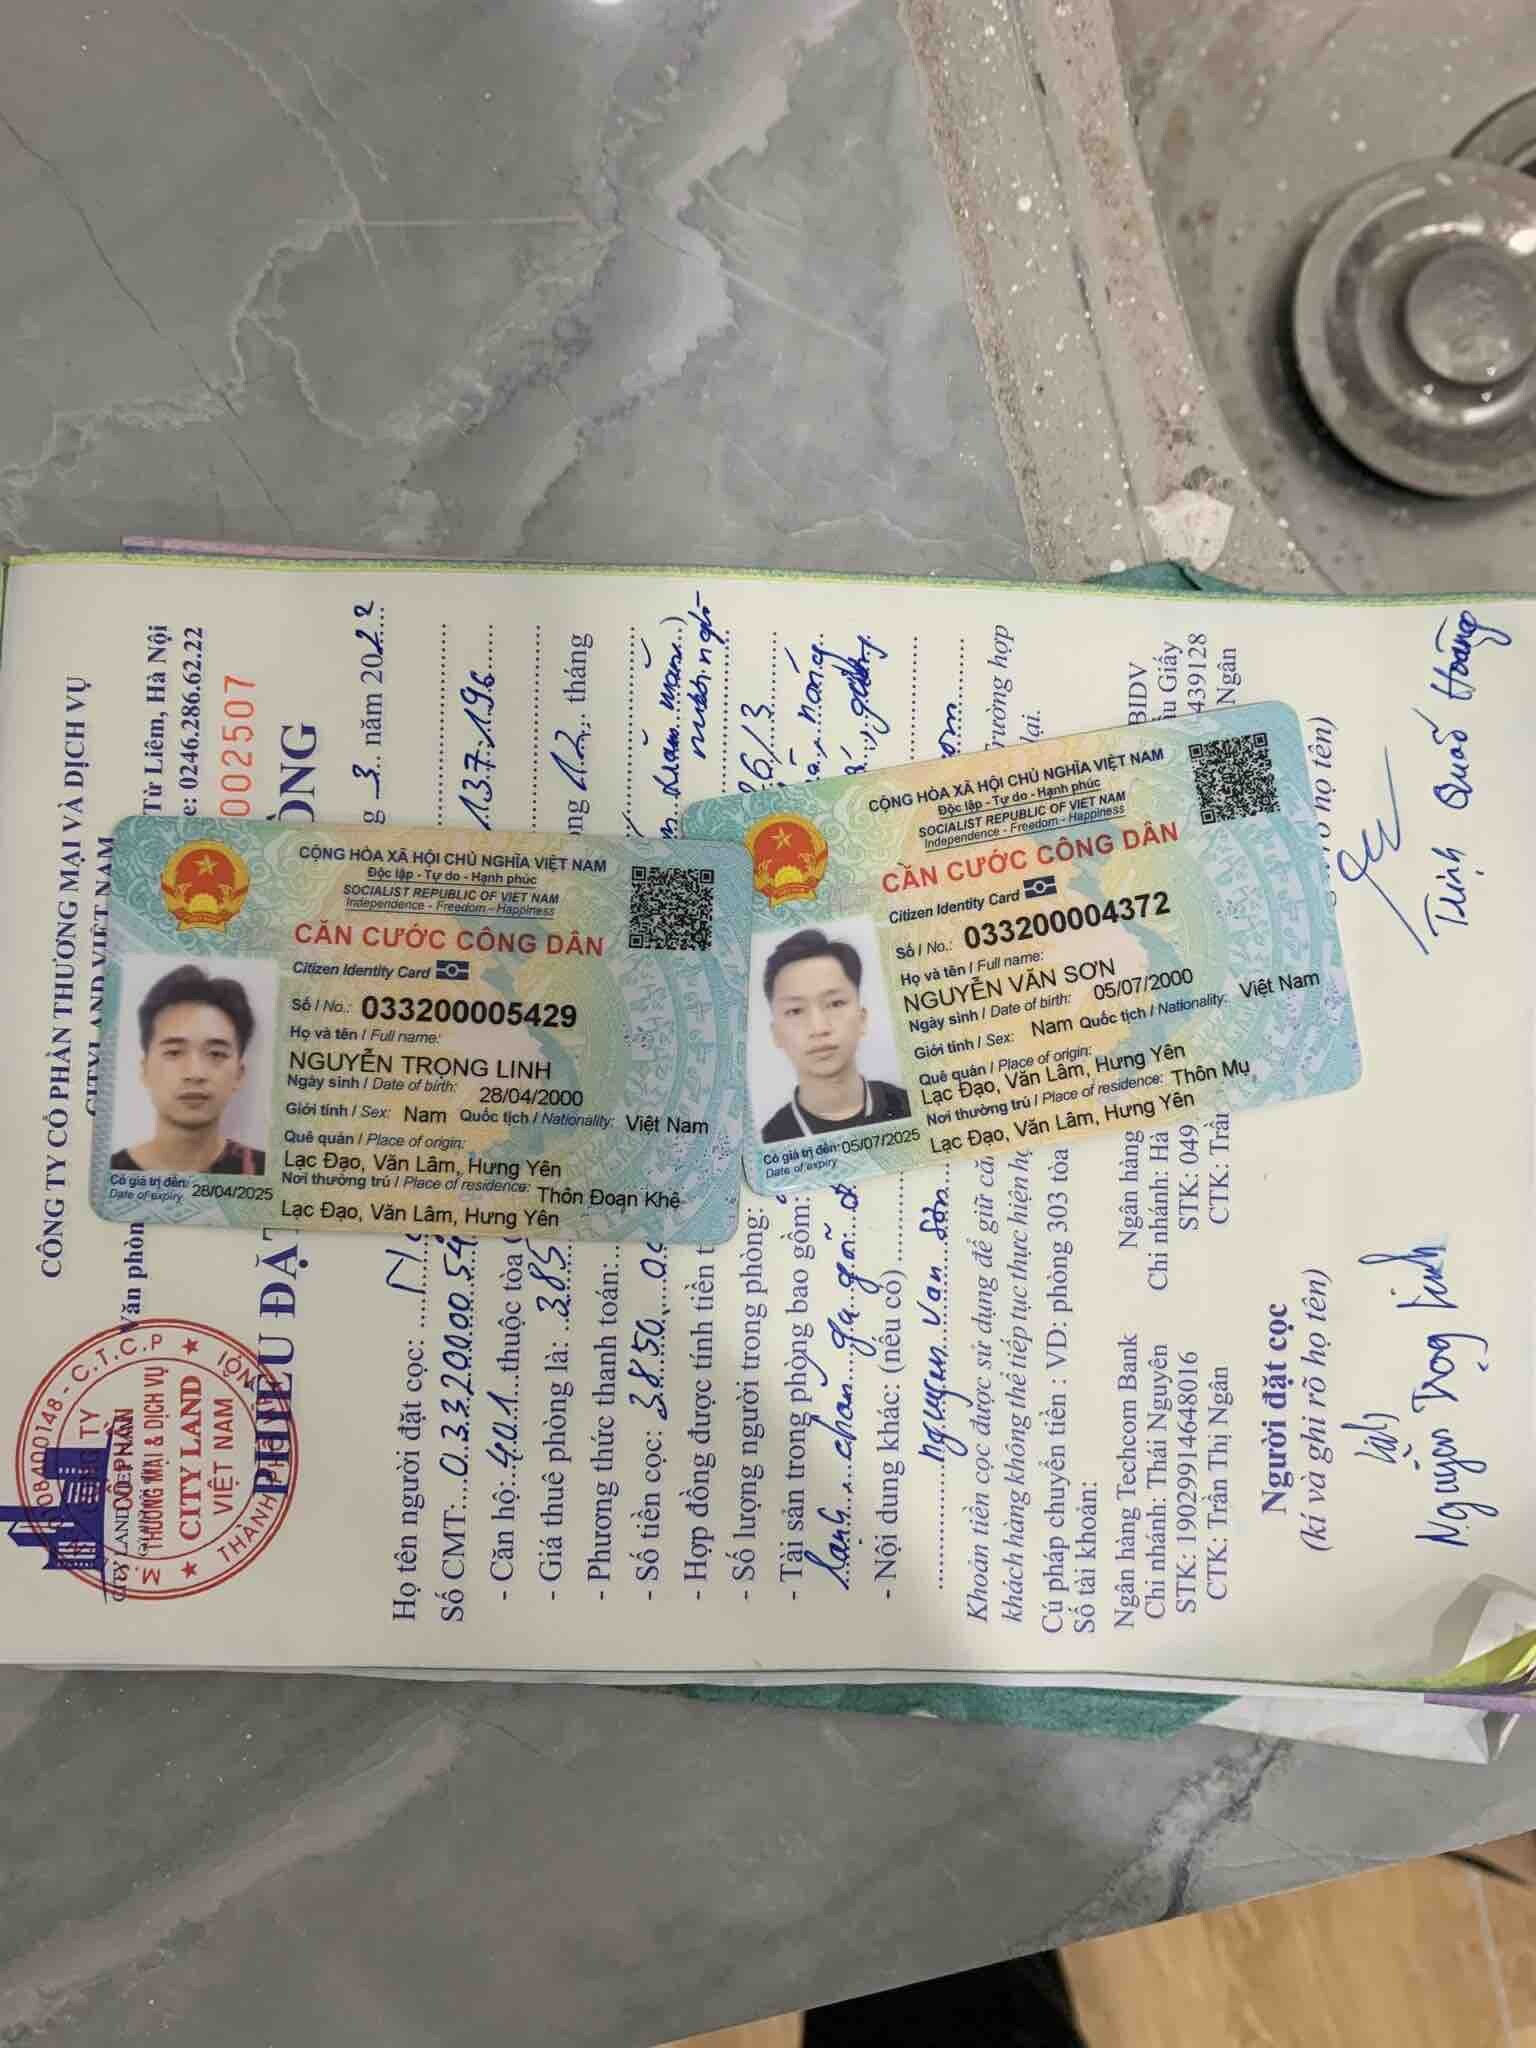 CÔNG TY CỔ PHẦN THƯƠNG MẠI VÀ DỊCH VỤ
CITYLAND VIỆT NAM
Văn phòn
Từ Liêm, Hà Nội
e: 0246.286.62.22
002507
PHIẾU ĐẶT
ÒNG
0108400148 - C.T.C.P
CÔNG TY
CỔ PHẦN
THƯƠNG MẠI & DỊCH VỤ
CITY LAND
VIỆT NAM
g 3 năm 2022
Họ tên người đặt cọc:
Số CMT: 0332000054
137.196
- Căn hộ: 401 thuộc tòa
- Giá thuê phòng là: 385
ong 12 tháng
- Phương thức thanh toán:
- Số tiền cọc: 3850.00
- Hợp đồng được tính tiền t
26/3
- Số lượng người trong phòng:
- Tài sản trong phòng bao gồm:
nóng
lạnh, chăn ga gối đ
- Nội dung khác: (nếu có)
Nguyễn Văn Sơn
Khoản tiền cọc được sử dụng để giữ căn
trường hợp
khách hàng không thể tiếp tục thực hiện h
lại.
Cú pháp chuyển tiền : VD: phòng 303 tòa
Số tài khoản:
Ngân hàng Techcom Bank
Chi nhánh: Thái Nguyên
STK: 19029914648016
CTK: Trần Thị Ngân
Ngân hàng
BIDV
Chi nhánh: Hà
ầu Giấy
STK: 049
439128
CTK: Trần
Ngân
Người đặt cọc
(kí và ghi rõ họ tên)
rõ họ tên)
Linh
Nguyễn Trọng Linh
Trịnh Quốc Hoàng
CỘNG HÒA XÃ HỘI CHỦ NGHĨA VIỆT NAM
Độc lập - Tự do - Hạnh phúc
SOCIALIST REPUBLIC OF VIET NAM
Independence - Freedom - Happiness
CĂN CƯỚC CÔNG DÂN
Citizen Identity Card
Số / No.: 033200005429
Họ và tên / Full name:
NGUYỄN TRỌNG LINH
Ngày sinh / Date of birth: 28/04/2000
Giới tính / Sex: Nam Quốc tịch / Nationality: Việt Nam
Quê quán / Place of origin:
Lạc Đạo, Văn Lâm, Hưng Yên
Nơi thường trú / Place of residence: Thôn Đoạn Khê
Lạc Đạo, Văn Lâm, Hưng Yên
Có giá trị đến: 28/04/2025
Date of expiry
CỘNG HÒA XÃ HỘI CHỦ NGHĨA VIỆT NAM
Độc lập - Tự do - Hạnh phúc
SOCIALIST REPUBLIC OF VIET NAM
Independence - Freedom - Happiness
CĂN CƯỚC CÔNG DÂN
Citizen Identity Card
Số / No.: 033200004372
Họ và tên / Full name:
NGUYỄN VĂN SƠN
Ngày sinh / Date of birth: 05/07/2000
Giới tính / Sex: Nam Quốc tịch / Nationality: Việt Nam
Quê quán / Place of origin:
Lạc Đạo, Văn Lâm, Hưng Yên
Nơi thường trú / Place of residence: Thôn Mụ
Lạc Đạo, Văn Lâm, Hưng Yên
Có giá trị đến: 05/07/2025
Date of expiry